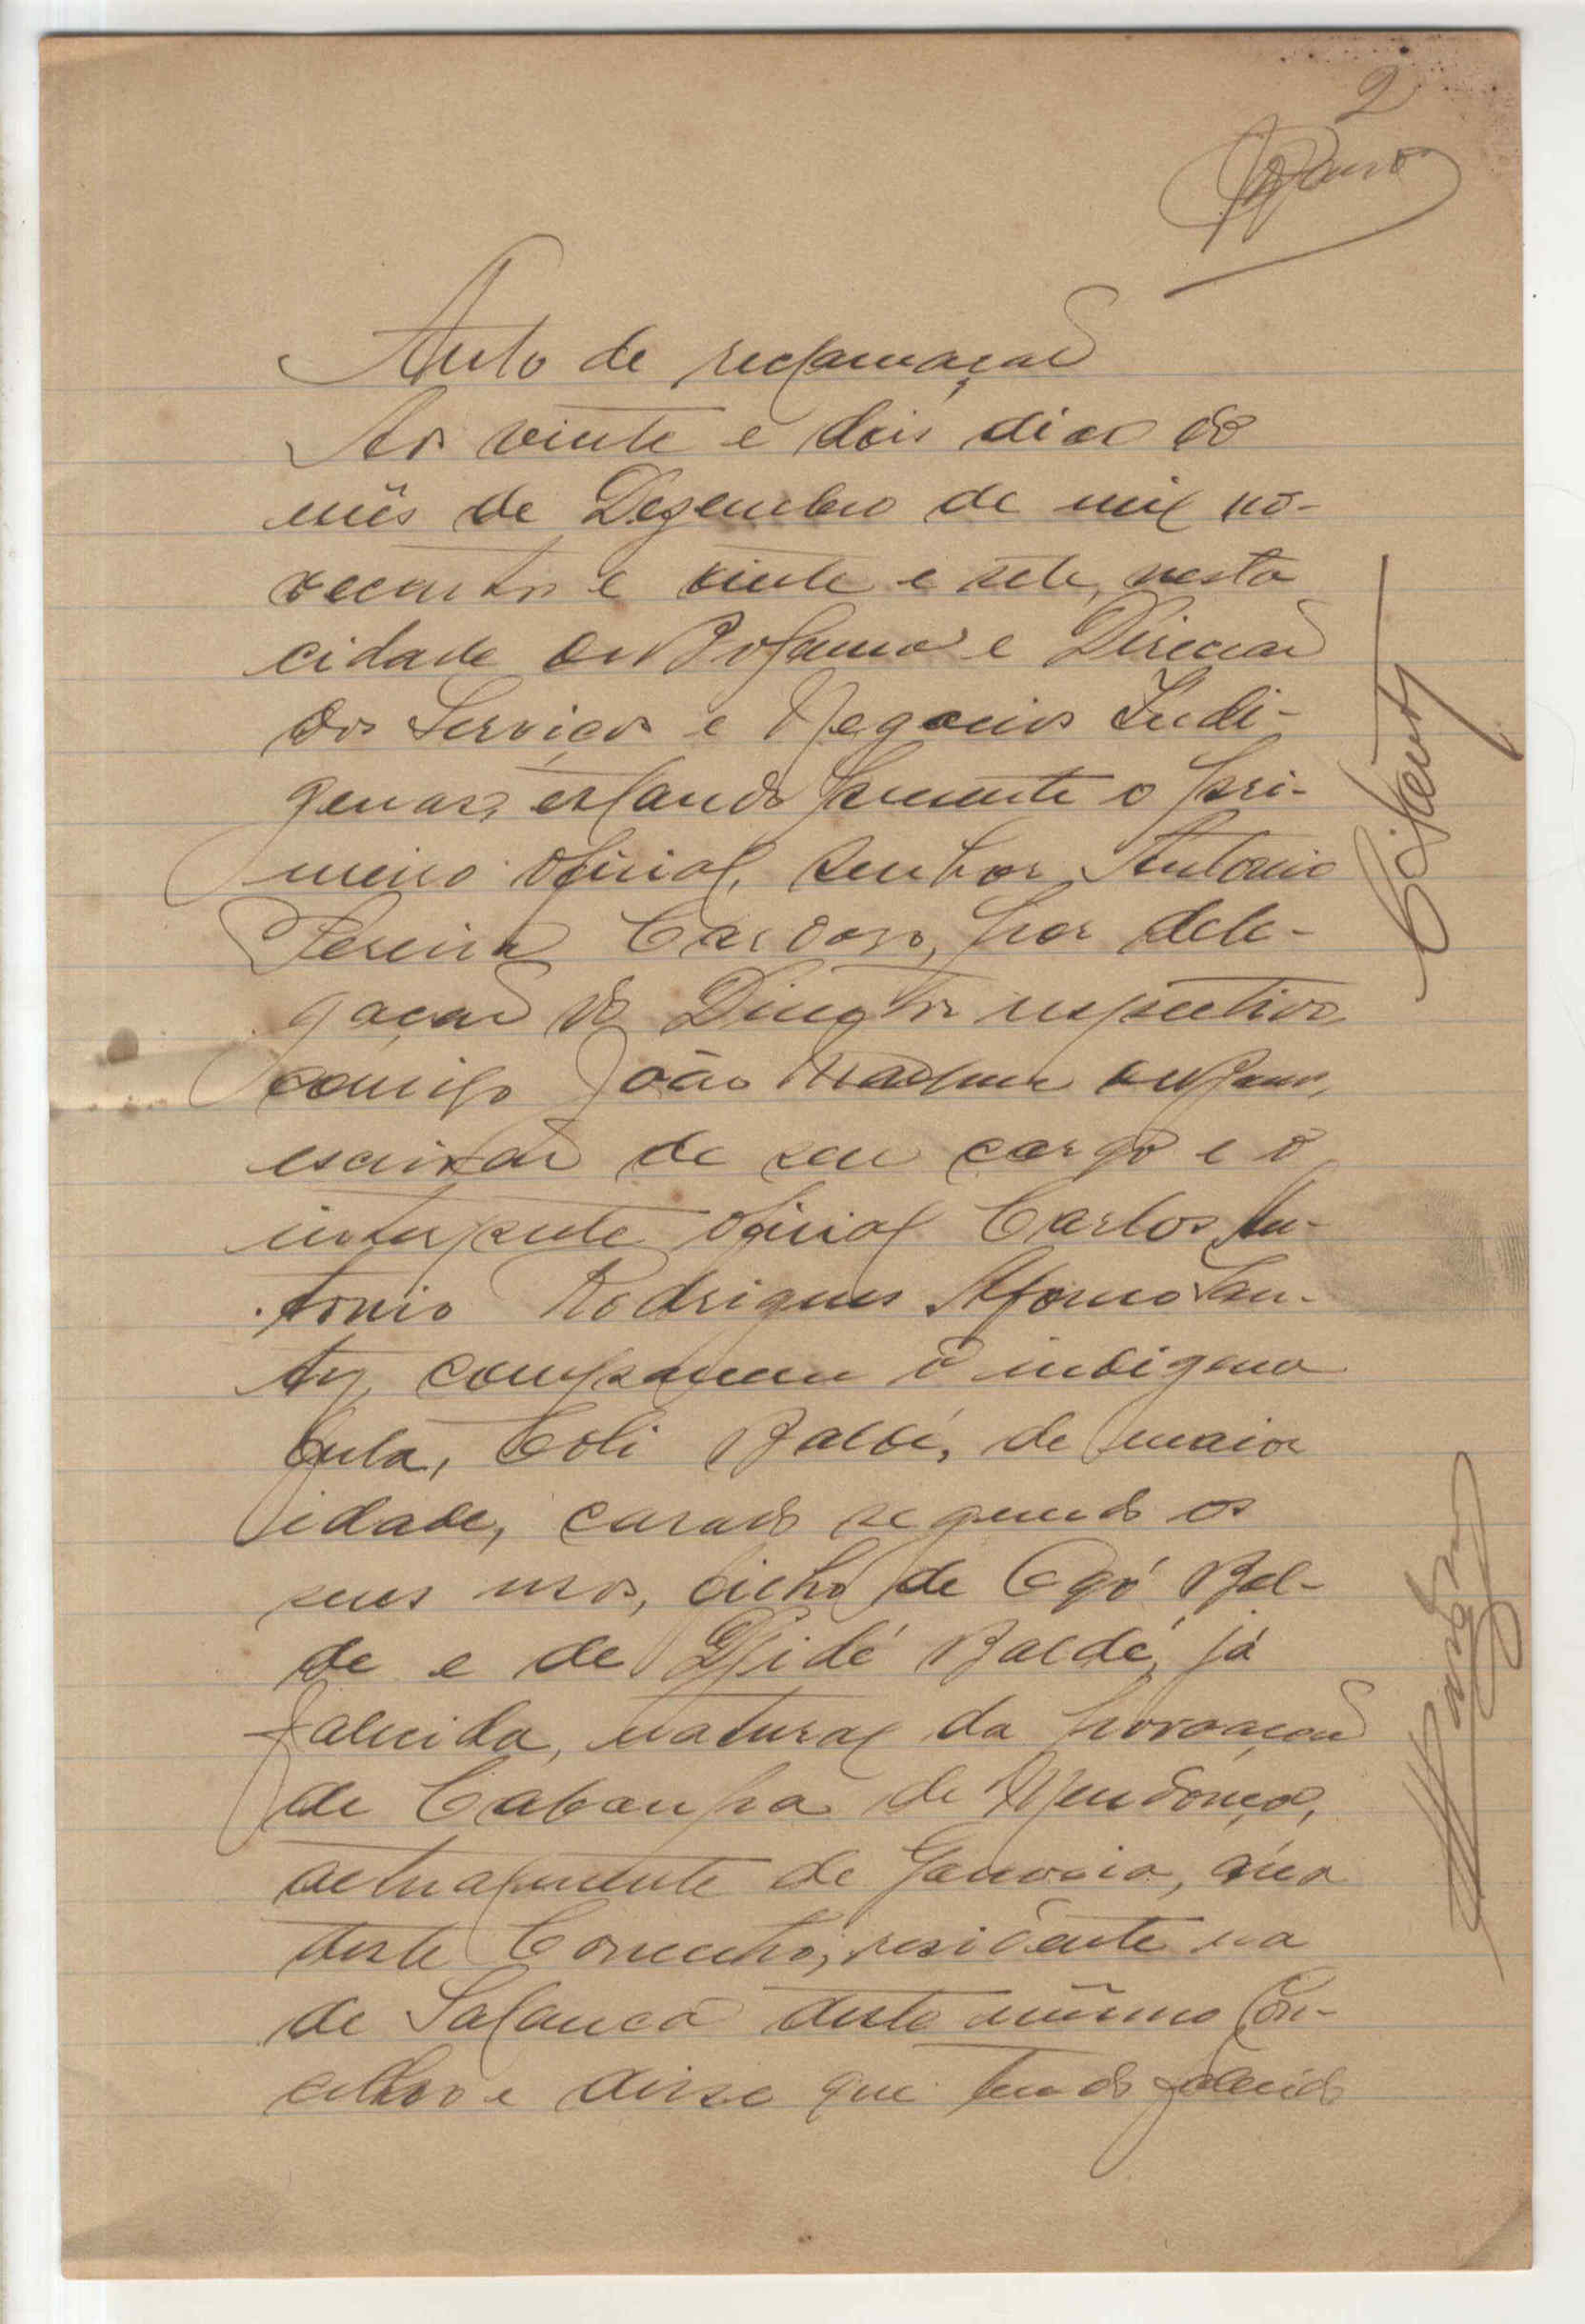 2
Auto de reclamação
Aos vinte e dois dias do
mês de Dezembro de mil no-
vecentos e vinte e sete, nesta
cidade de Bolama e Direcção
dos Serviços e Negocios Indi-
genas, estando presente o pri-
meiro oficial, senhor Antonio
Pereira Cardoso, por dele-
gação do Director respectivo,
comigo João
escrivão de seu cargo e o
interprete oficial Carlos An-
tonio Rodrigues Afonso San-
ty, compareceu o indigena
fula, Coli Baldé, de maior
idade, casado segundo os
seus usos, filho de Egó Bal-
de e de Djidé Baldé, já
falecida, natural da povoação
de de Mendonça,
actualmente de area
deste Concelho, residente na
de Salancá deste mesmo Con-
celho e disse que tendo falecido
CSanty